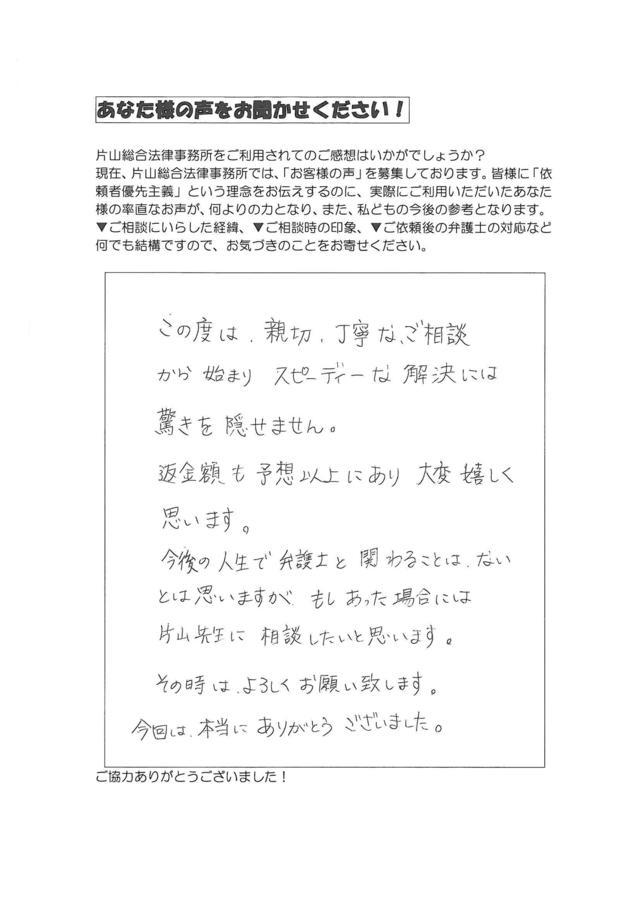 あなた様の声をお聞かせください！
片山総合法律事務所をご利用されてのご感想はいかがでしょうか？
現在、片山総合法律事務所では、「お客様の声」を募集しております。皆様に「依
頼者優先主義」という理念をお伝えするのに、実際にご利用いただいたあなた
様の率直なお声が、何よりの力となり、また、私どもの今後の参考となります。
▼ご相談にいらした経緯、▼ご相談時の印象、▼ご依頼後の弁護士の対応など
何でも結構ですので、お気づきのことをお寄せください。
この度は、親切、丁寧な、ご相談
から始まり スピーディーな解決には
驚きを隠せません。
返金額も予想以上にあり 大変嬉しく
思います。
今後の人生で弁護士と関わることは、ない
とは思いますが もしあった場合には
片山先生に 相談したいと思います。
その時は、よろしくお願い致します。
今回は、本当にありがとうございました。
ご協力ありがとうございました！